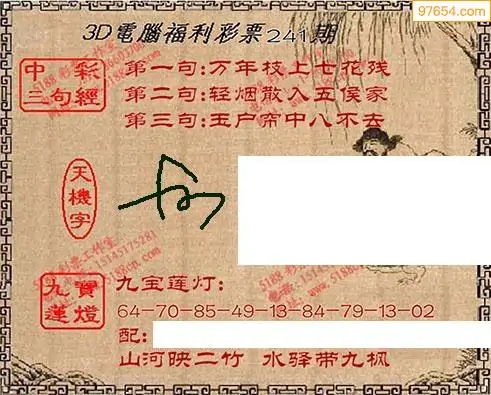 97654.com
3D電腦福利彩票241期
中彩三句經
第一句:万年枝上七花残
第二句:轻烟散入五侯家
第三句:玉户帘中八不去
天機字
九寶蓮燈
九宝莲灯:
64-70-85-49-13-84-79-13-02
配:
山河映二竹 水驿带九枫